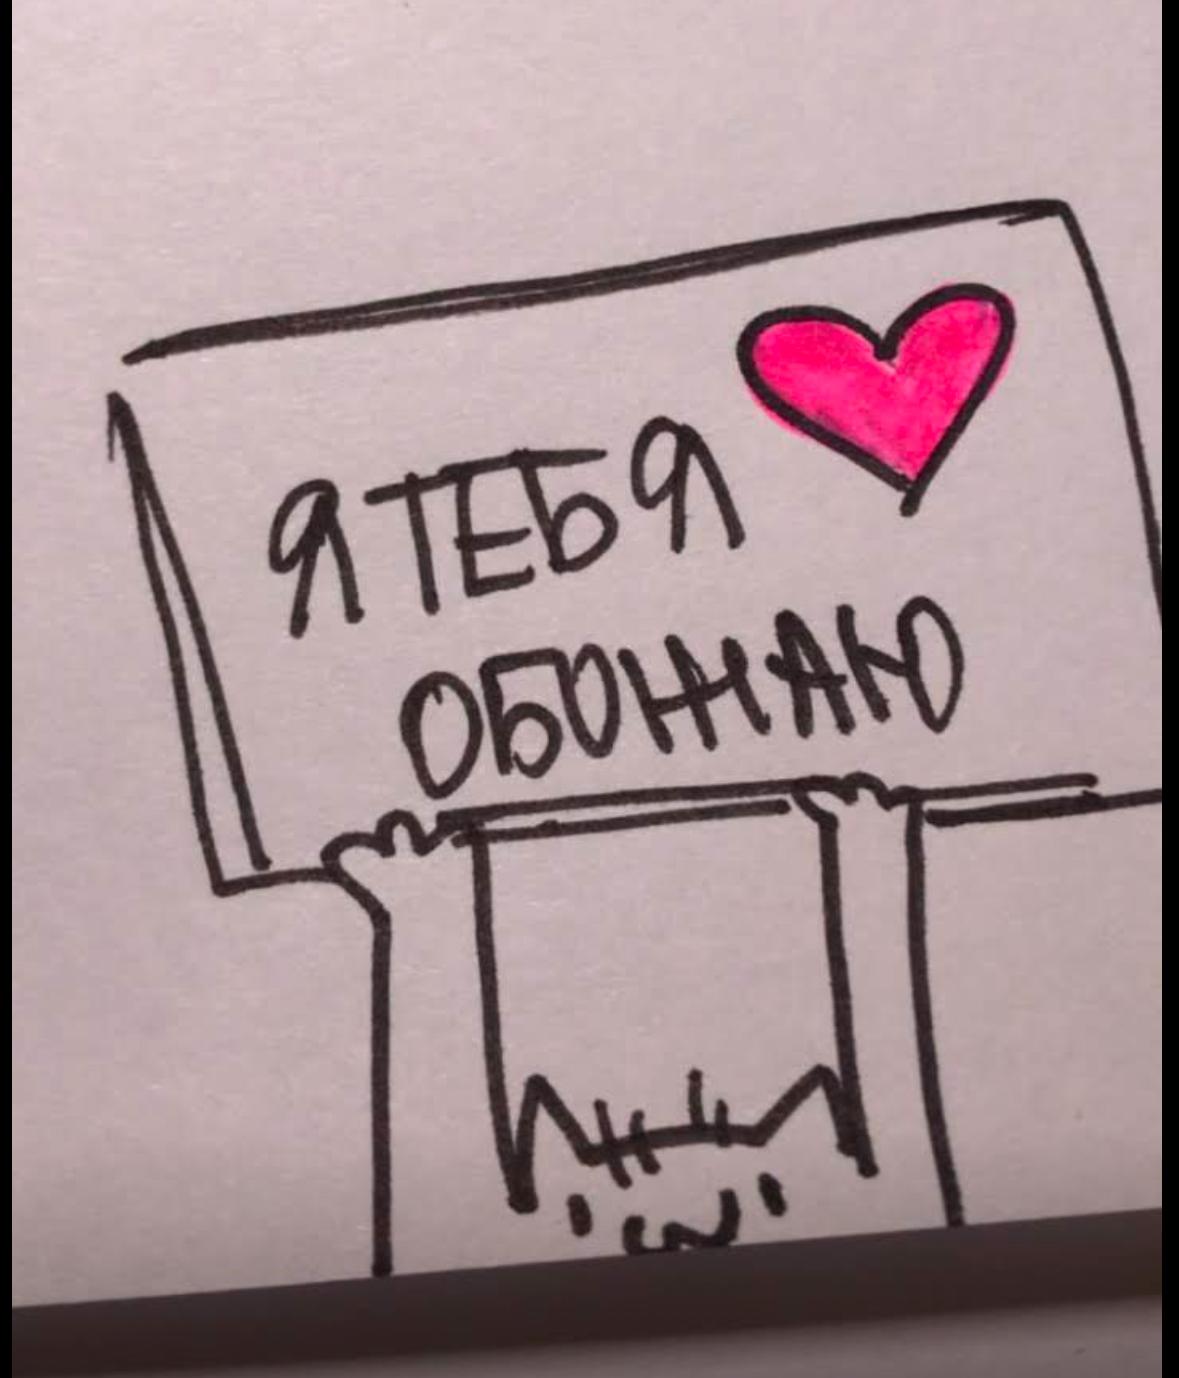 Я ТЕБЯ
ОБОЖАЮ